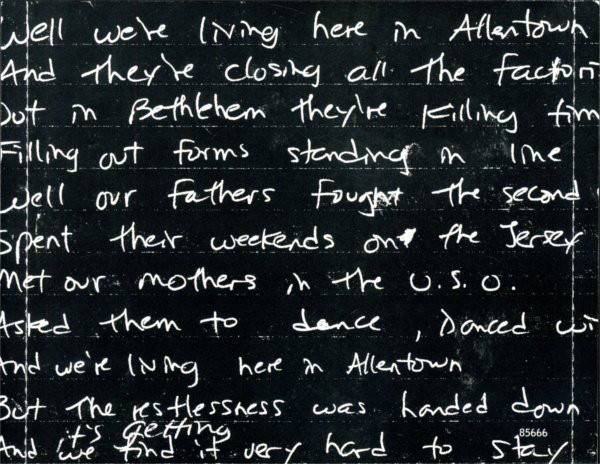 Well we're living here in Allentown
And they're closing all the factori
Out in Bethlehem they're killing tim
Filling out forms standing in line
Well our fathers fought the second
Spent their weekends on the Jersey
Met our mothers in the U.S.O.
Asked them to dance, Danced wi
And we're living here in Allentown
But the restlessness was handed down
it's getting
And we find it very hard to stay
85666